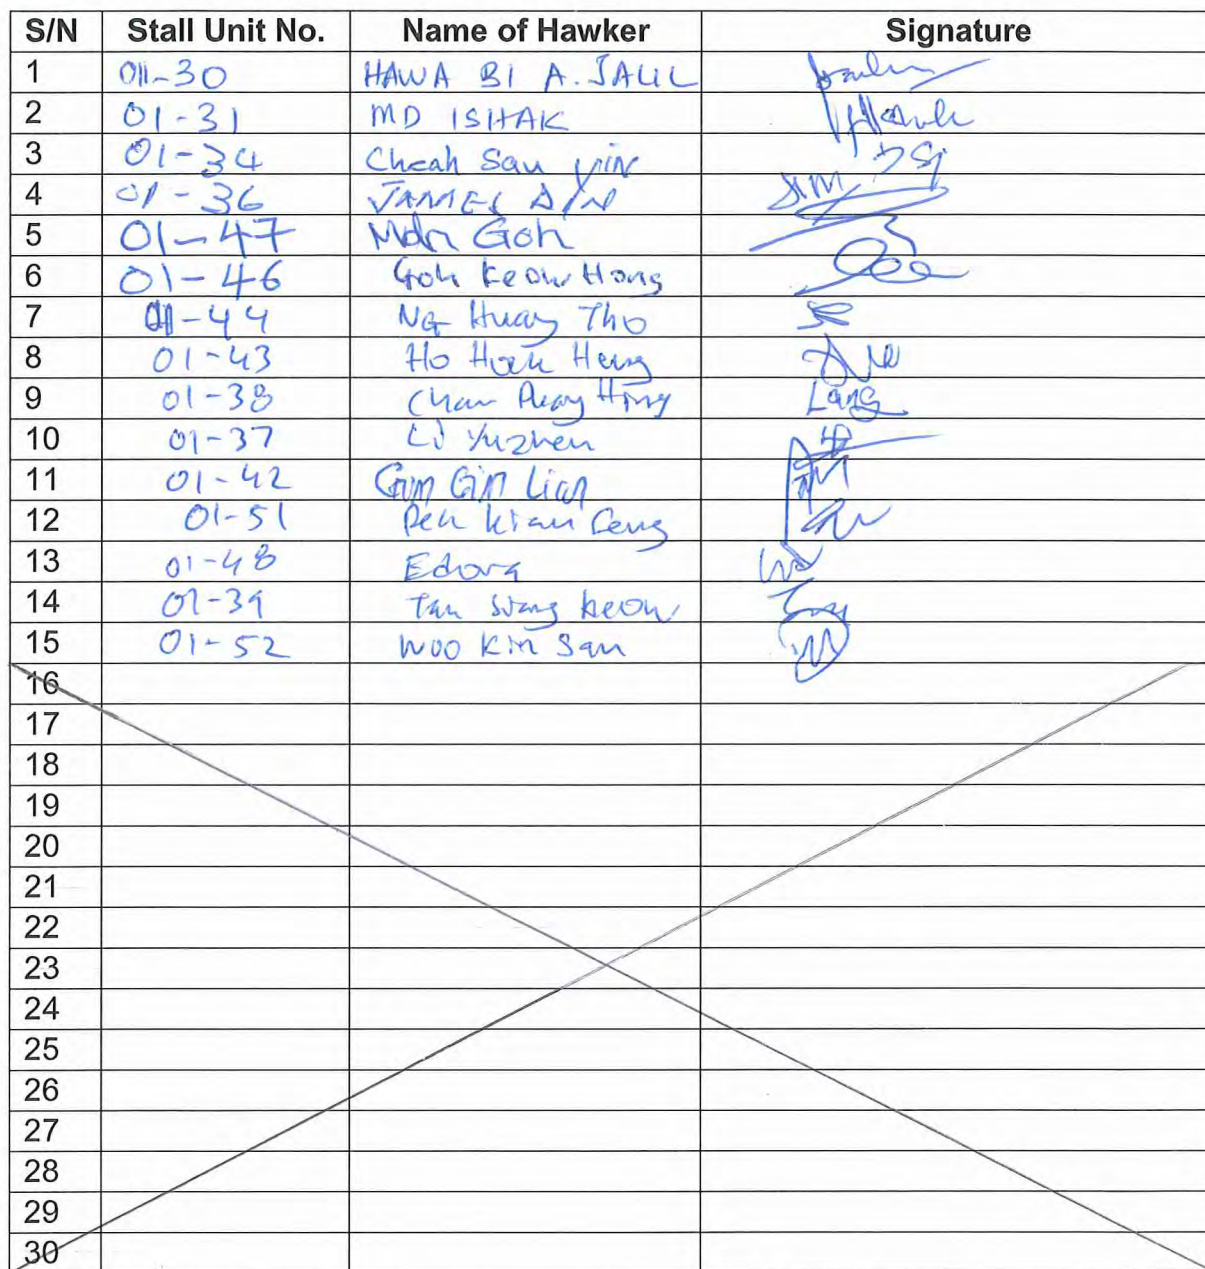 S/N Stall Unit No. Name of Hawker Signature
1 01-30 HAWA BI A. JALIL
2 01-31 MD ISHAK
3 01-34 Cheah San Yin
4 01-36 JAMES A/N
5 01-47 Mdn Goh
6 01-46 Goh Keow Hong
7 01-44 Ng Huay Tho
8 01-43 Ho Hock Heng
9 01-38 Chan Puay Hing Lang
10 01-37 Li Yuzhen
11 01-42 Gim Gin Lian
12 01-51 Peh Kian Seng
13 01-48 Edora
14 01-39 Tan Siang Keow
15 01-52 Woo Kin San
16
17
18
19
20
21
22
23
24
25
26
27
28
29
30